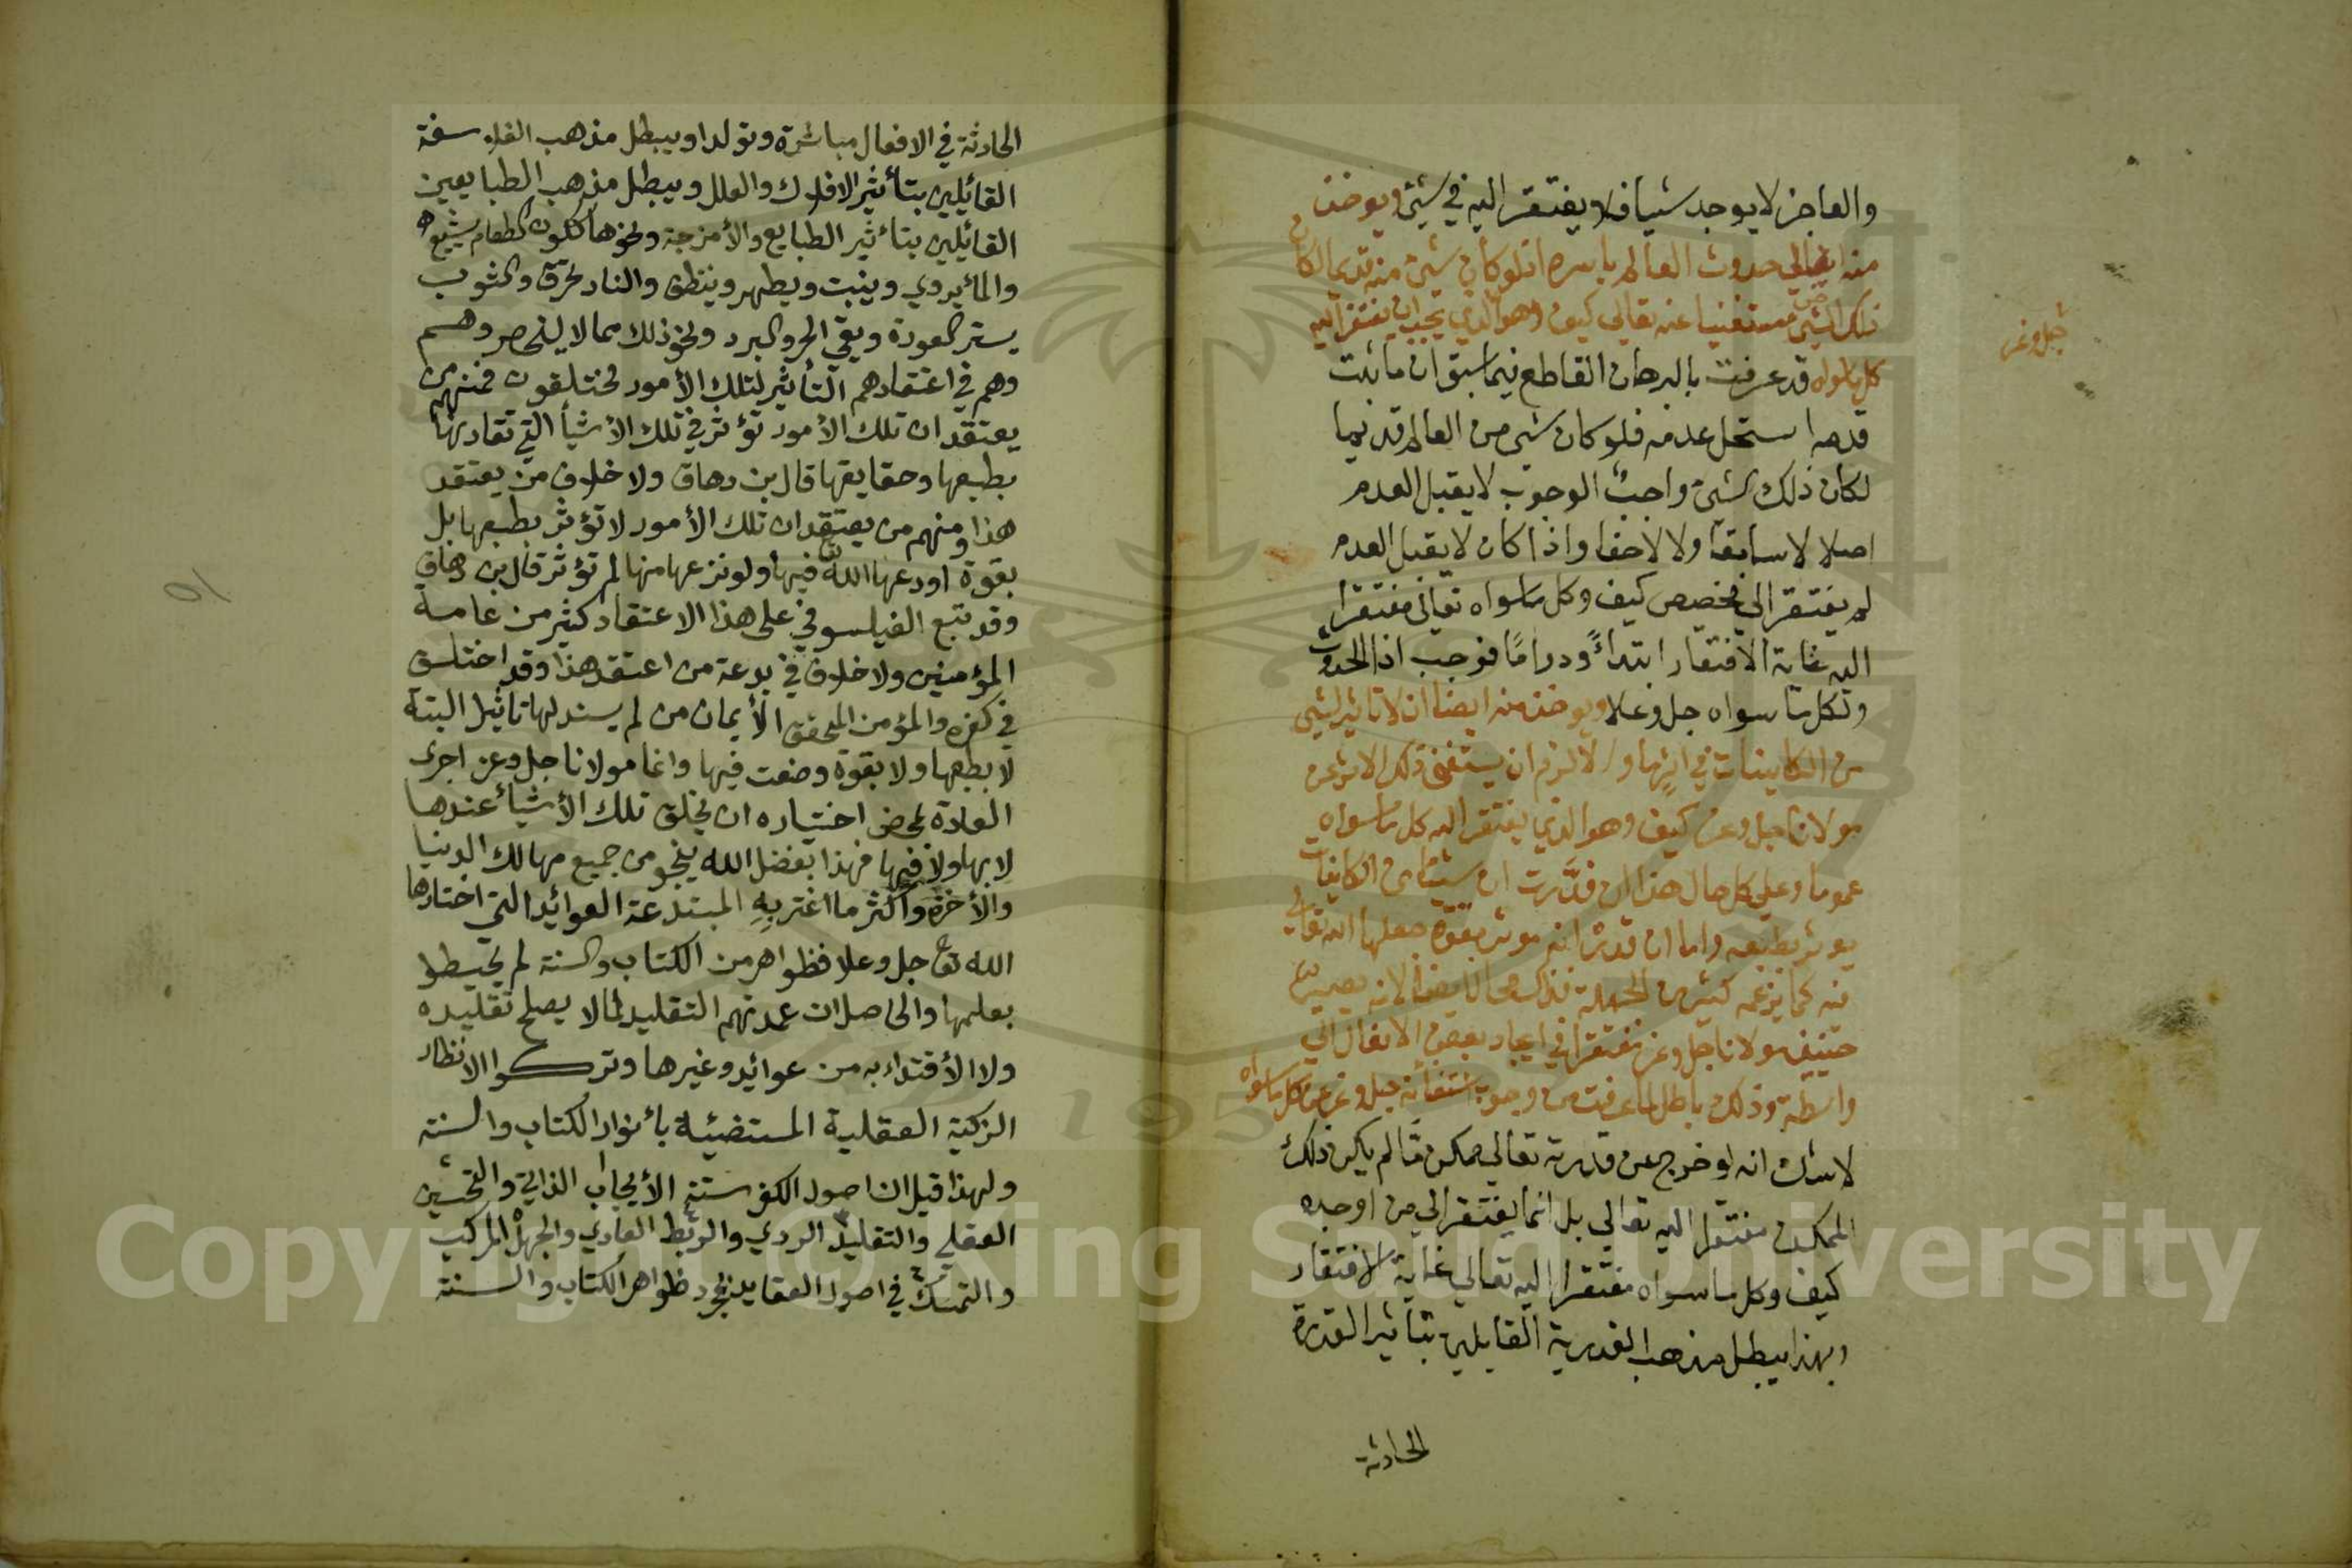 والعاجز لا يوجد شيا فلا يفتقر اليه في شيئ ويوخذ
منه ايضا حدوث العالم باسره اذ لو كان شيئ منه قديما لكان
ذلك الشيئ مستغنيا عنه تعالي كيف وهو الذي يجب ان يفتقر اليه
كل ماسواه قد عرفت بالبرهان القاطع فيما سبق ان ما ثبت
قدمه استحل عدمه فلو كان شي من العالم قديما
لكان ذلك الشيئ واجب الوجوب لا يقبل العدم
اصلا لا سابقا ولا لاحقا واذا كان لا يقبل العدم
لم يفتقر الي مخصص كيف وكل ماسواه تعالي مفتقرا
اليه غاية الافتقار ابتداءً ودوامًا فوجب اذا الحدوث
لكل ما سواه جل وعلا ويوخذ منه ايضا ان لا تاثير لشي
من الكاينات في اثرٍما والا لزم ان يستغني ذلك الاثر عن
مولانا جل وعز كيف وهو الذي يفتقر اليه كل ماسواه
عموما وعلي كل حال هذا ان قدَّرت ان شيئا من الكاينات
يوثر بطبعه واما ان قدرته موثر بقوة جعلها الله تعالي
فيه كما يزعمه كثير من الجهلة فذلك محال ايضا لانه يصير
حينيذ مولانا جل وعز مفتقرا في ايجاد بعض الافعال الي
واسطة وذلك باطل لما عرفت من وجوب استغنائه جل وعز عن كل ماسواه
لاشك انه لو خرج عن قدرته تعالي ممكن مَّا لم يكن ذلك
الممكن مفتقرا اليه تعالي بل انما يفتقر الي من اوجده
كيف وكل ماسواه مفتقرا اليه تعالي غاية الافتقار
وبهذا يبطل مذهب القدرية القايلين بتاثير القدرة
الحادثة
جل وعز
الحادثة في الافعال مباشرة وتولدا ويبطل مذهب الفلاسفة
القائيلين بتأثير الافلاك والعلل ويبطل مذهب الطبايعين
القائيلين بتأثير الطبايع والأمزجة ونحوها ككون الطعام يشبع
والمأ يروي وينبت ويطهر وينظف والنار تحرق والثوب
يستر العورة ويقي الحر والبرد ونحو ذلك مما لا ينحصر وهسم
وهم في اعتقادهم التأثير لتلك الأمور مختلفون فمنهم من
يعتقد ان تلك الأمور تؤثر في تلك الأشيأ التي تقارنها
بطبعها وحقايقها قال بن دهاق ولا خلاف من يعتقد
هذا ومنهم من يعتقد ان تلك الأمور لا تؤثر بطبعها بل
بقوة اودعها الله فيها ولو نزعها منها لم تؤثر قال بن دهاق
وقد تبع الفيلسوفي على هذا الاعتقاد كثير من عامة
المؤمنين ولا خلاف في بدعة من اعتقد هذا وقد اختلف
في كفره والمؤمن المحقق الأيمان من لم يسند لها تاثيرا البتة
لا بطبعها ولا بقوة وضعت فيها وانما مولانا جل وعز اجرى
العادة بمحض اختياره ان يخلق تلك الأشيأ عندها
لا بها ولا فيها فهذا بفضل الله ينجو من جميع مهالك الدنيا
والأخرة واكثر ما اغتر بهِ المبتدعة العوائيد التي اختارها
الله تع جل وعلا وظواهر من الكتاب والسنة لم يحيطوا
بعلمها والحاصل ان عمدتهم التقليد لما لا يصلح تقليده
ولا الأقتداء به من عوائيد وغيرها وتركوا الانظار
الزكية العقلية المستضيئة بأنوار الكتاب والسنه
ولهذا قيل ان اصول الكفر ستة الأيجاب الذاتي والتحسين
العقلي والتقليد الردي والربط العادي والجهل المركب
والتمسك في اصول العقايد بمجرد ظواهر الكتاب والسنة
Copyright © King Saud University